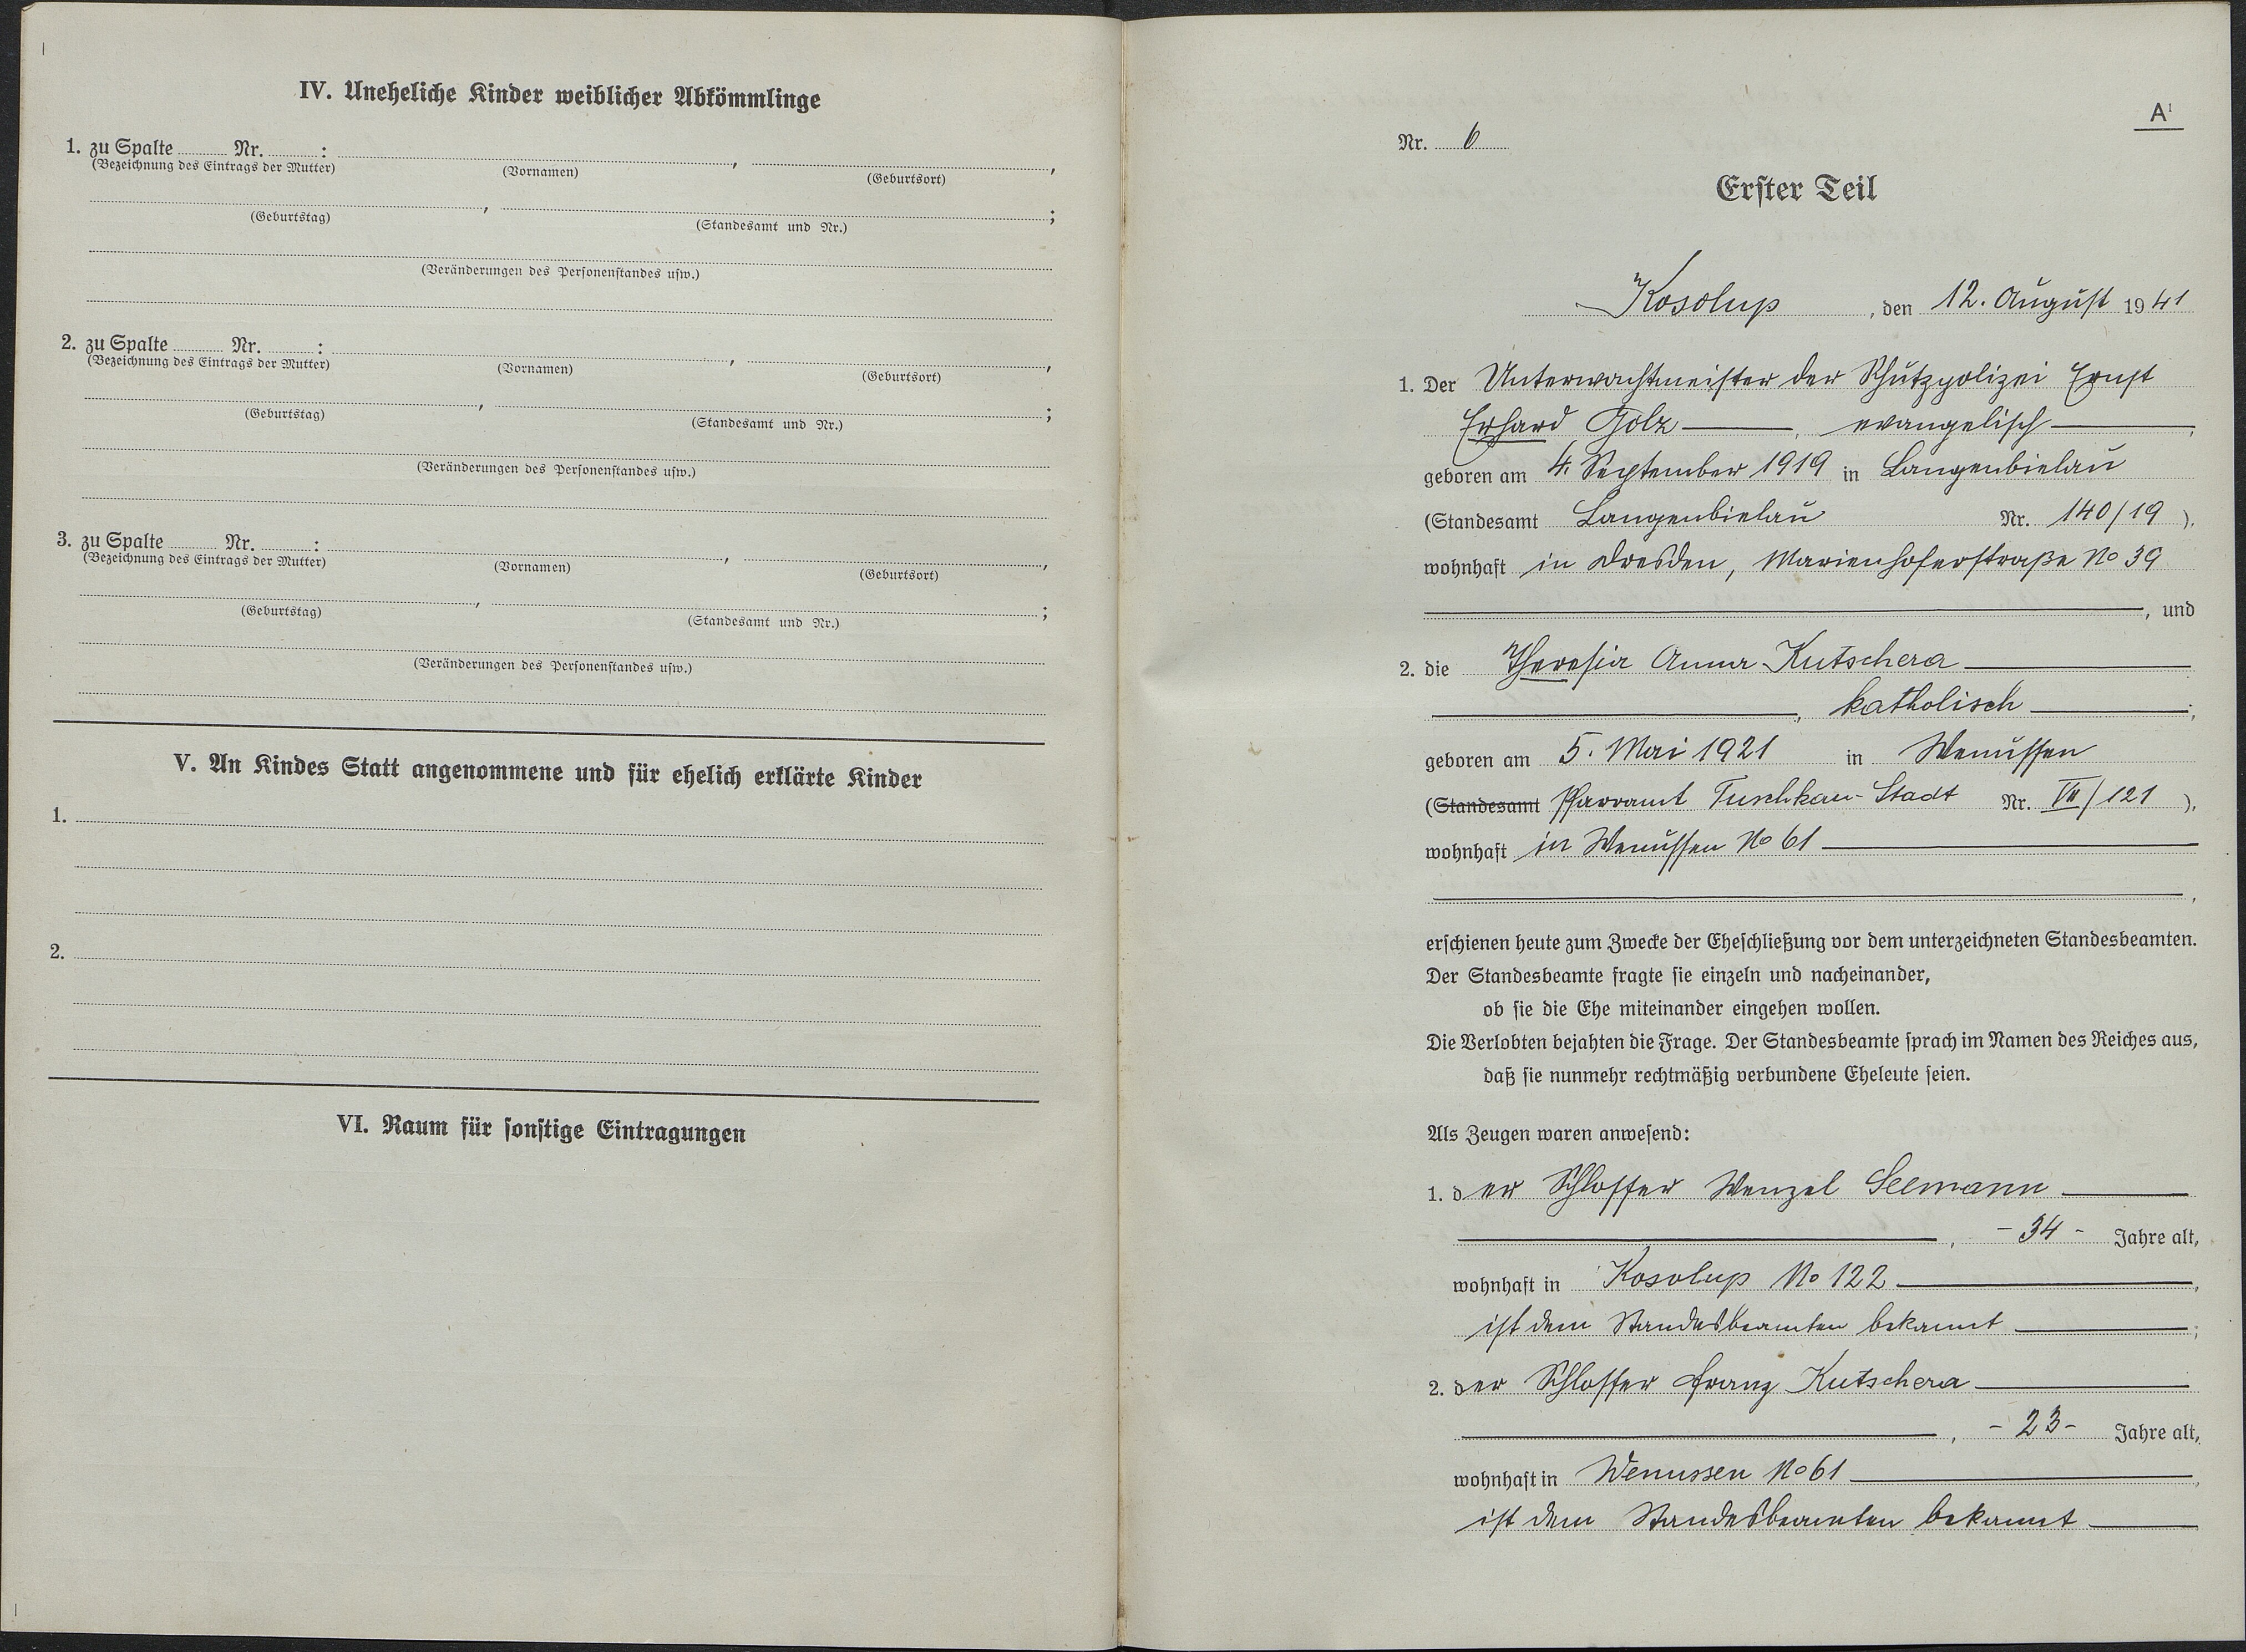 IV. Uneheliche Kinder weiblicher Abkömmlinge
1. zu Spalte Nr. : , ,
(Bezeichnung des Eintrags der Mutter) (Vornamen) (Geburtsort)
, ;
(Geburtstag) (Standesamt und Nr.)
(Veränderungen des Personenstandes usw.)
2. zu Spalte Nr. : , ,
(Bezeichnung des Eintrags der Mutter) (Vornamen) (Geburtsort)
, ;
(Geburtstag) (Standesamt und Nr.)
(Veränderungen des Personenstandes usw.)
3. zu Spalte Nr. : , ,
(Bezeichnung des Eintrags der Mutter) (Vornamen) (Geburtsort)
, ;
(Geburtstag) (Standesamt und Nr.)
(Veränderungen des Personenstandes usw.)
V. An Kindes Statt angenommene und für ehelich erklärte Kinder
1.
2.
VI. Raum für sonstige Eintragungen
A¹
Nr. 6
Erster Teil
Kosolup, den 12. August 1941
1. Der Unterwachtmeister der Schutzpolizei Ernst
Erhard Golz, evangelisch,
geboren am 4. September 1919 in Langenbielau
(Standesamt Langenbielau Nr. 140/19),
wohnhaft in Dresden, Marienhoferstraße No 39
, und
2. die Theresia Anna Kutschera
, katholisch,
geboren am 5. Mai 1921 in Wenussen
(Standesamt Pfarramt Tuschkau-Stadt Nr. VII/121),
wohnhaft in Wenussen No 61
,
erschienen heute zum Zwecke der Eheschließung vor dem unterzeichneten Standesbeamten.
Der Standesbeamte fragte sie einzeln und nacheinander,
ob sie die Ehe miteinander eingehen wollen.
Die Verlobten bejahten die Frage. Der Standesbeamte sprach im Namen des Reiches aus,
daß sie nunmehr rechtmäßig verbundene Eheleute seien.
Als Zeugen waren anwesend:
1. der Schlosser Wenzel Seemann
, - 34 - Jahre alt,
wohnhaft in Kosolup No 122,
ist dem Standesbeamten bekannt;
2. der Schlosser Franz Kutschera
, - 23 - Jahre alt,
wohnhaft in Wenussen No 61,
ist dem Standesbeamten bekannt